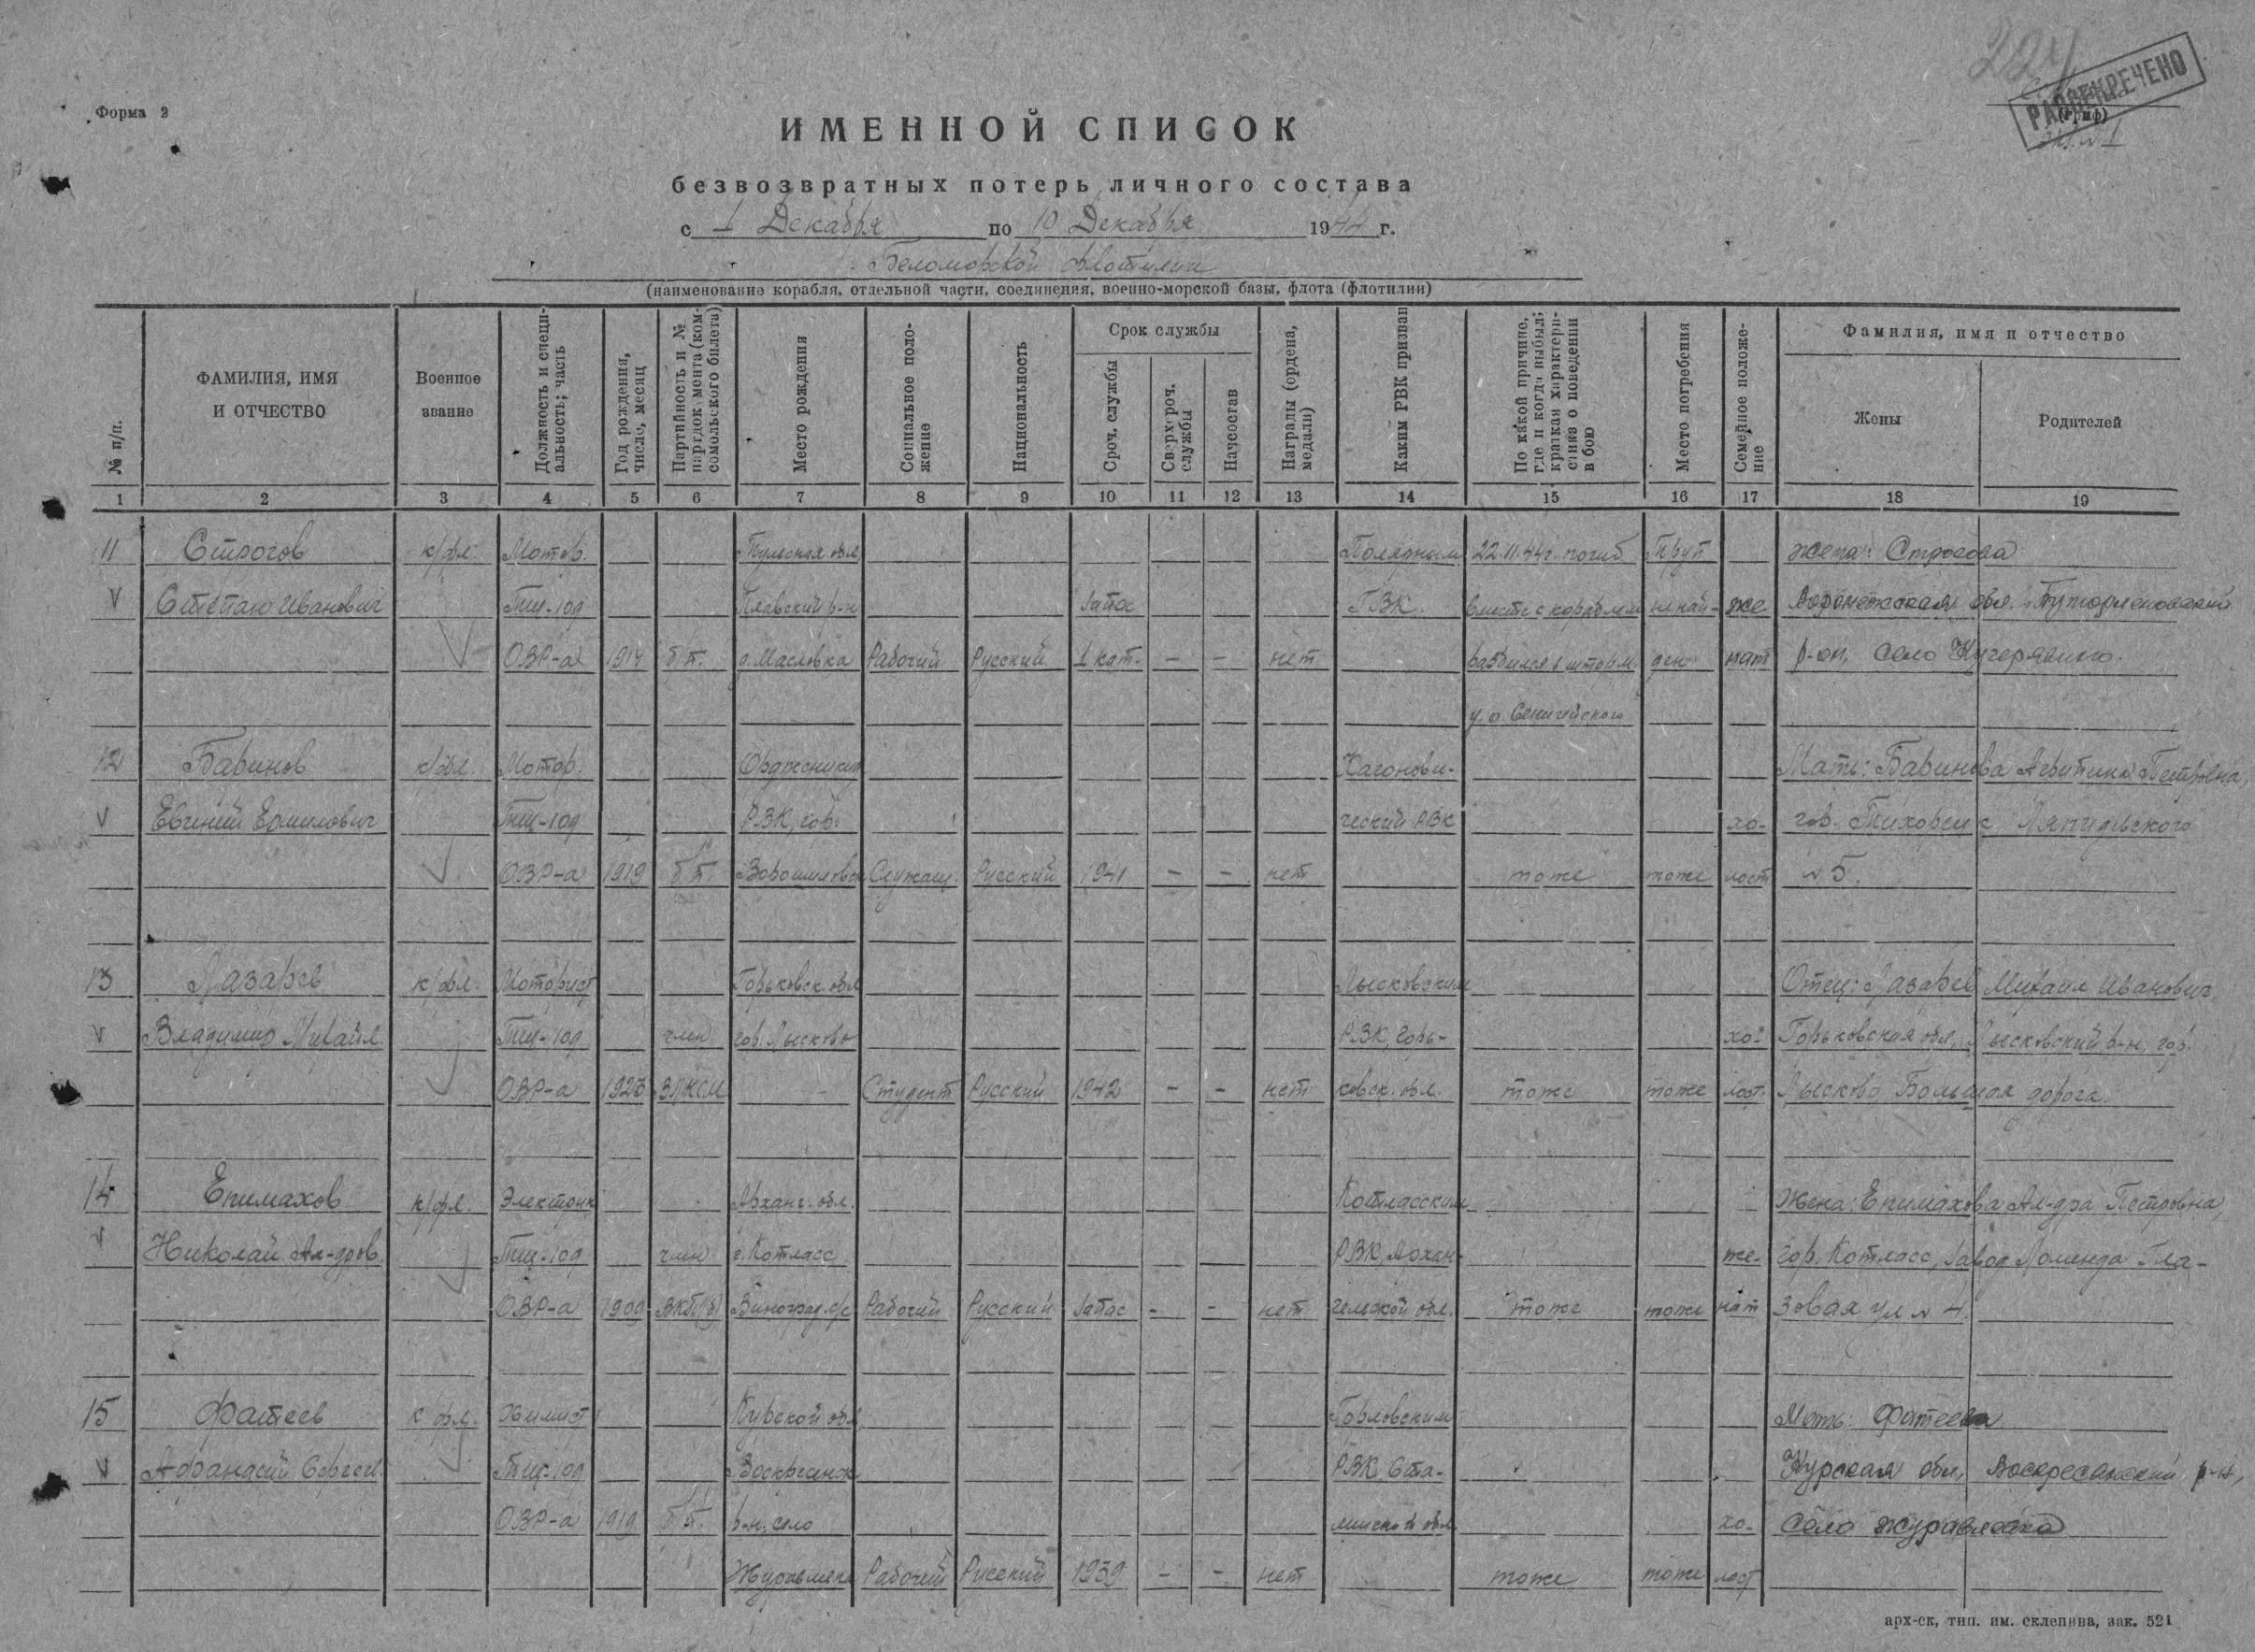 Форма 2
224
РАССЕКРЕЧЕНО
(гриф)
ИМЕННОЙ СПИСОК
безвозвратных потерь личного состава
с 1 Декабря по 10 Декабря 1944 г.
Беломорской флотилии
(наименование корабля, отдельной части, соединения, военно-морской базы, флота (флотилии)
№ п/п.
ФАМИЛИЯ, ИМЯ И ОТЧЕСТВО
Военное звание
Должность и специальность; часть
Год рождения, число, месяц
Партийность и № партдокумента (комсомольского билета)
Место рождения
Социальное положение
Национальность
Срок службы
Сроч. службы
Сверхсроч. службы
Начсостав
Награды (ордена, медали)
Каким РВК призван
По какой причине, где и когда выбыл; краткая характеристика о поведении в бою
Место погребения
Семейное положение
Фамилия, имя и отчество
Жены
Родителей
1 2 3 4 5 6 7 8 9 10 11 12 13 14 15 16 17 18 19
11 Строгов к/фл. Мотор. Тульская обл Полярным 22.11.44г. погиб Труп жена: Строгова
V Степан Иванович Тщ-109 Плавский р-н Запас ГВК. вместе с кораблем не най- же Воронежская обл.
ОВР-а 1914 б/п. д. Масловка Рабочий Русский 1 кат. – – нет разбился в шторм ден нат р-он, село Кучеряеино.
у о. Сенгейского
12 Баринов к/фл. Мотор. Орджоникид Каганови- Мать: Баринова Петровна,
V Евгений Ермилович Тщ-109 РВК, гор. ческий РВК хо- гор. Тихорецк Ляпидевского
ОВР-а 1919 б/п. Ворошиловск Служащ. Русский 1941 – – нет тоже тоже лост №5.
13 Лазарев к/фл. Моторист Горьковск. обл Лысковским Отец: Лазарев Михаил Иванович,
V Владимир Михайл. Тщ-109 член гор. Лысково РВК, Горь- хо- Горьковская обл, Лысковский р-н, гор.
ОВР-а 1923 ВЛКСМ – Студент Русский 1942 – – нет ковск. обл. тоже тоже лост. Лысково Большая дорога.
14 Епимахов к/фл. Электрик Арханг. обл. Котласским Жена: Епимахова Ал-дра Петровна,
V Николай Ал-дров. Тщ-109 член г. Котласс РВК,Архан- же- гор. Котласс, завод Лименда Гла-
ОВР-а 1900 ВКП(б) Виноград. с/с Рабочий Русский Запас - - нет гельской обл. тоже тоже нат зовая ул № 4.
15 Фатеев к фл. Химист Курской обл Горловским Мать: Фатеева
V Афанасий Сергеев. Тщ-109 РВК, Ста- Курская обл, Воскресенский р-н,
ОВР-а 1919 б/п. р-н, село линской обл. хо- село Журавлевка
Журавлевка Рабочий Русский 1939 – – нет тоже тоже лост
арх-ск, тип. им. склепина, зак. 521